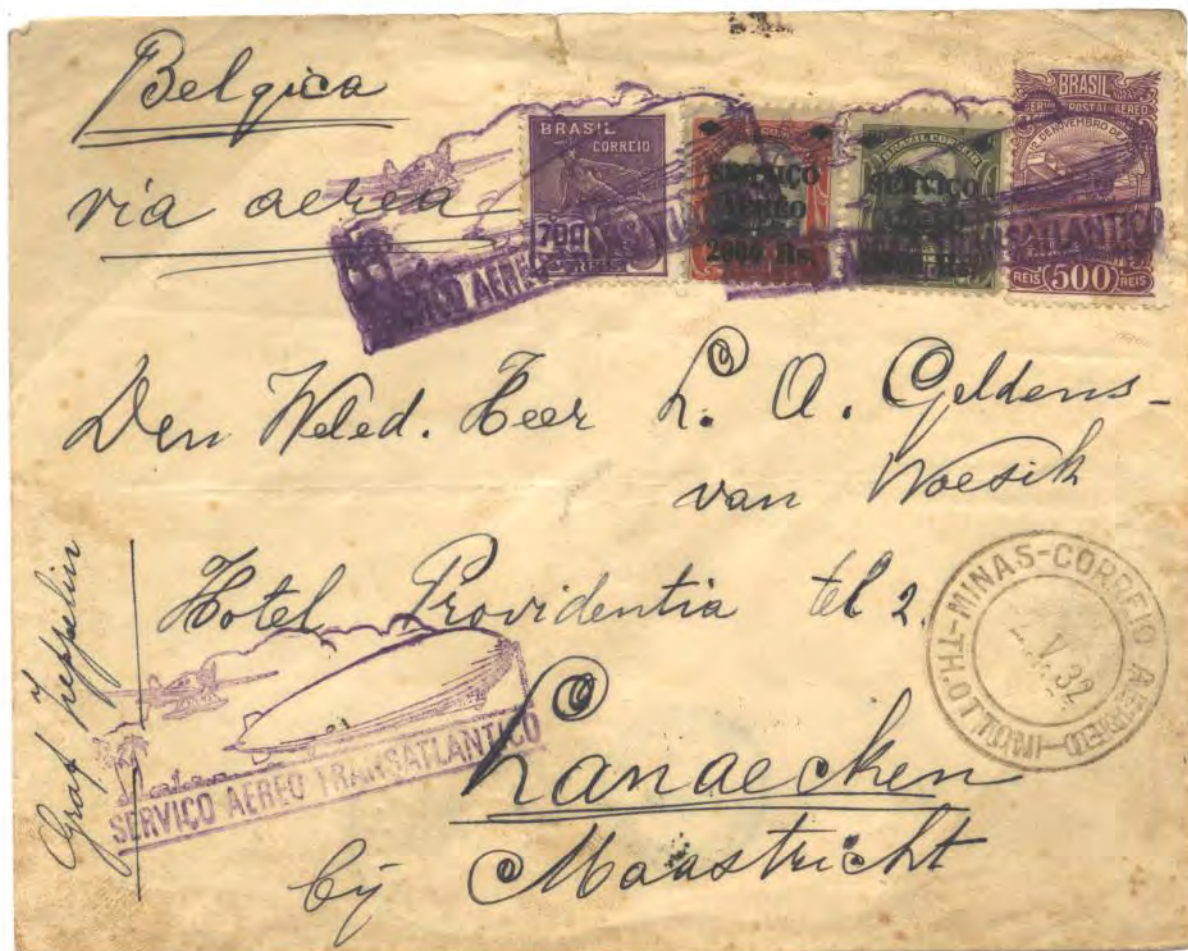 Belgica
via aerea
BRASIL
CORREIO
700
REIS
SERVIÇO
AEREO
2000 Rs.
BRAZIL CORREIO
SERVIÇO
AEREO
Rs.
BRASIL
SERVIÇO POSTAL AEREO
REIS 500 REIS
AEREO
TRANSATLANTICO
Den Weled. Heer L. A. Geldens-
van Woesik
Hotel Providentia tel 2.
Lanaecken
bij Maastricht
Graf Zeppelin
SERVIÇO AEREO TRANSATLANTICO
TH.OTTONI-MINAS-CORREIO AEREO
V.32